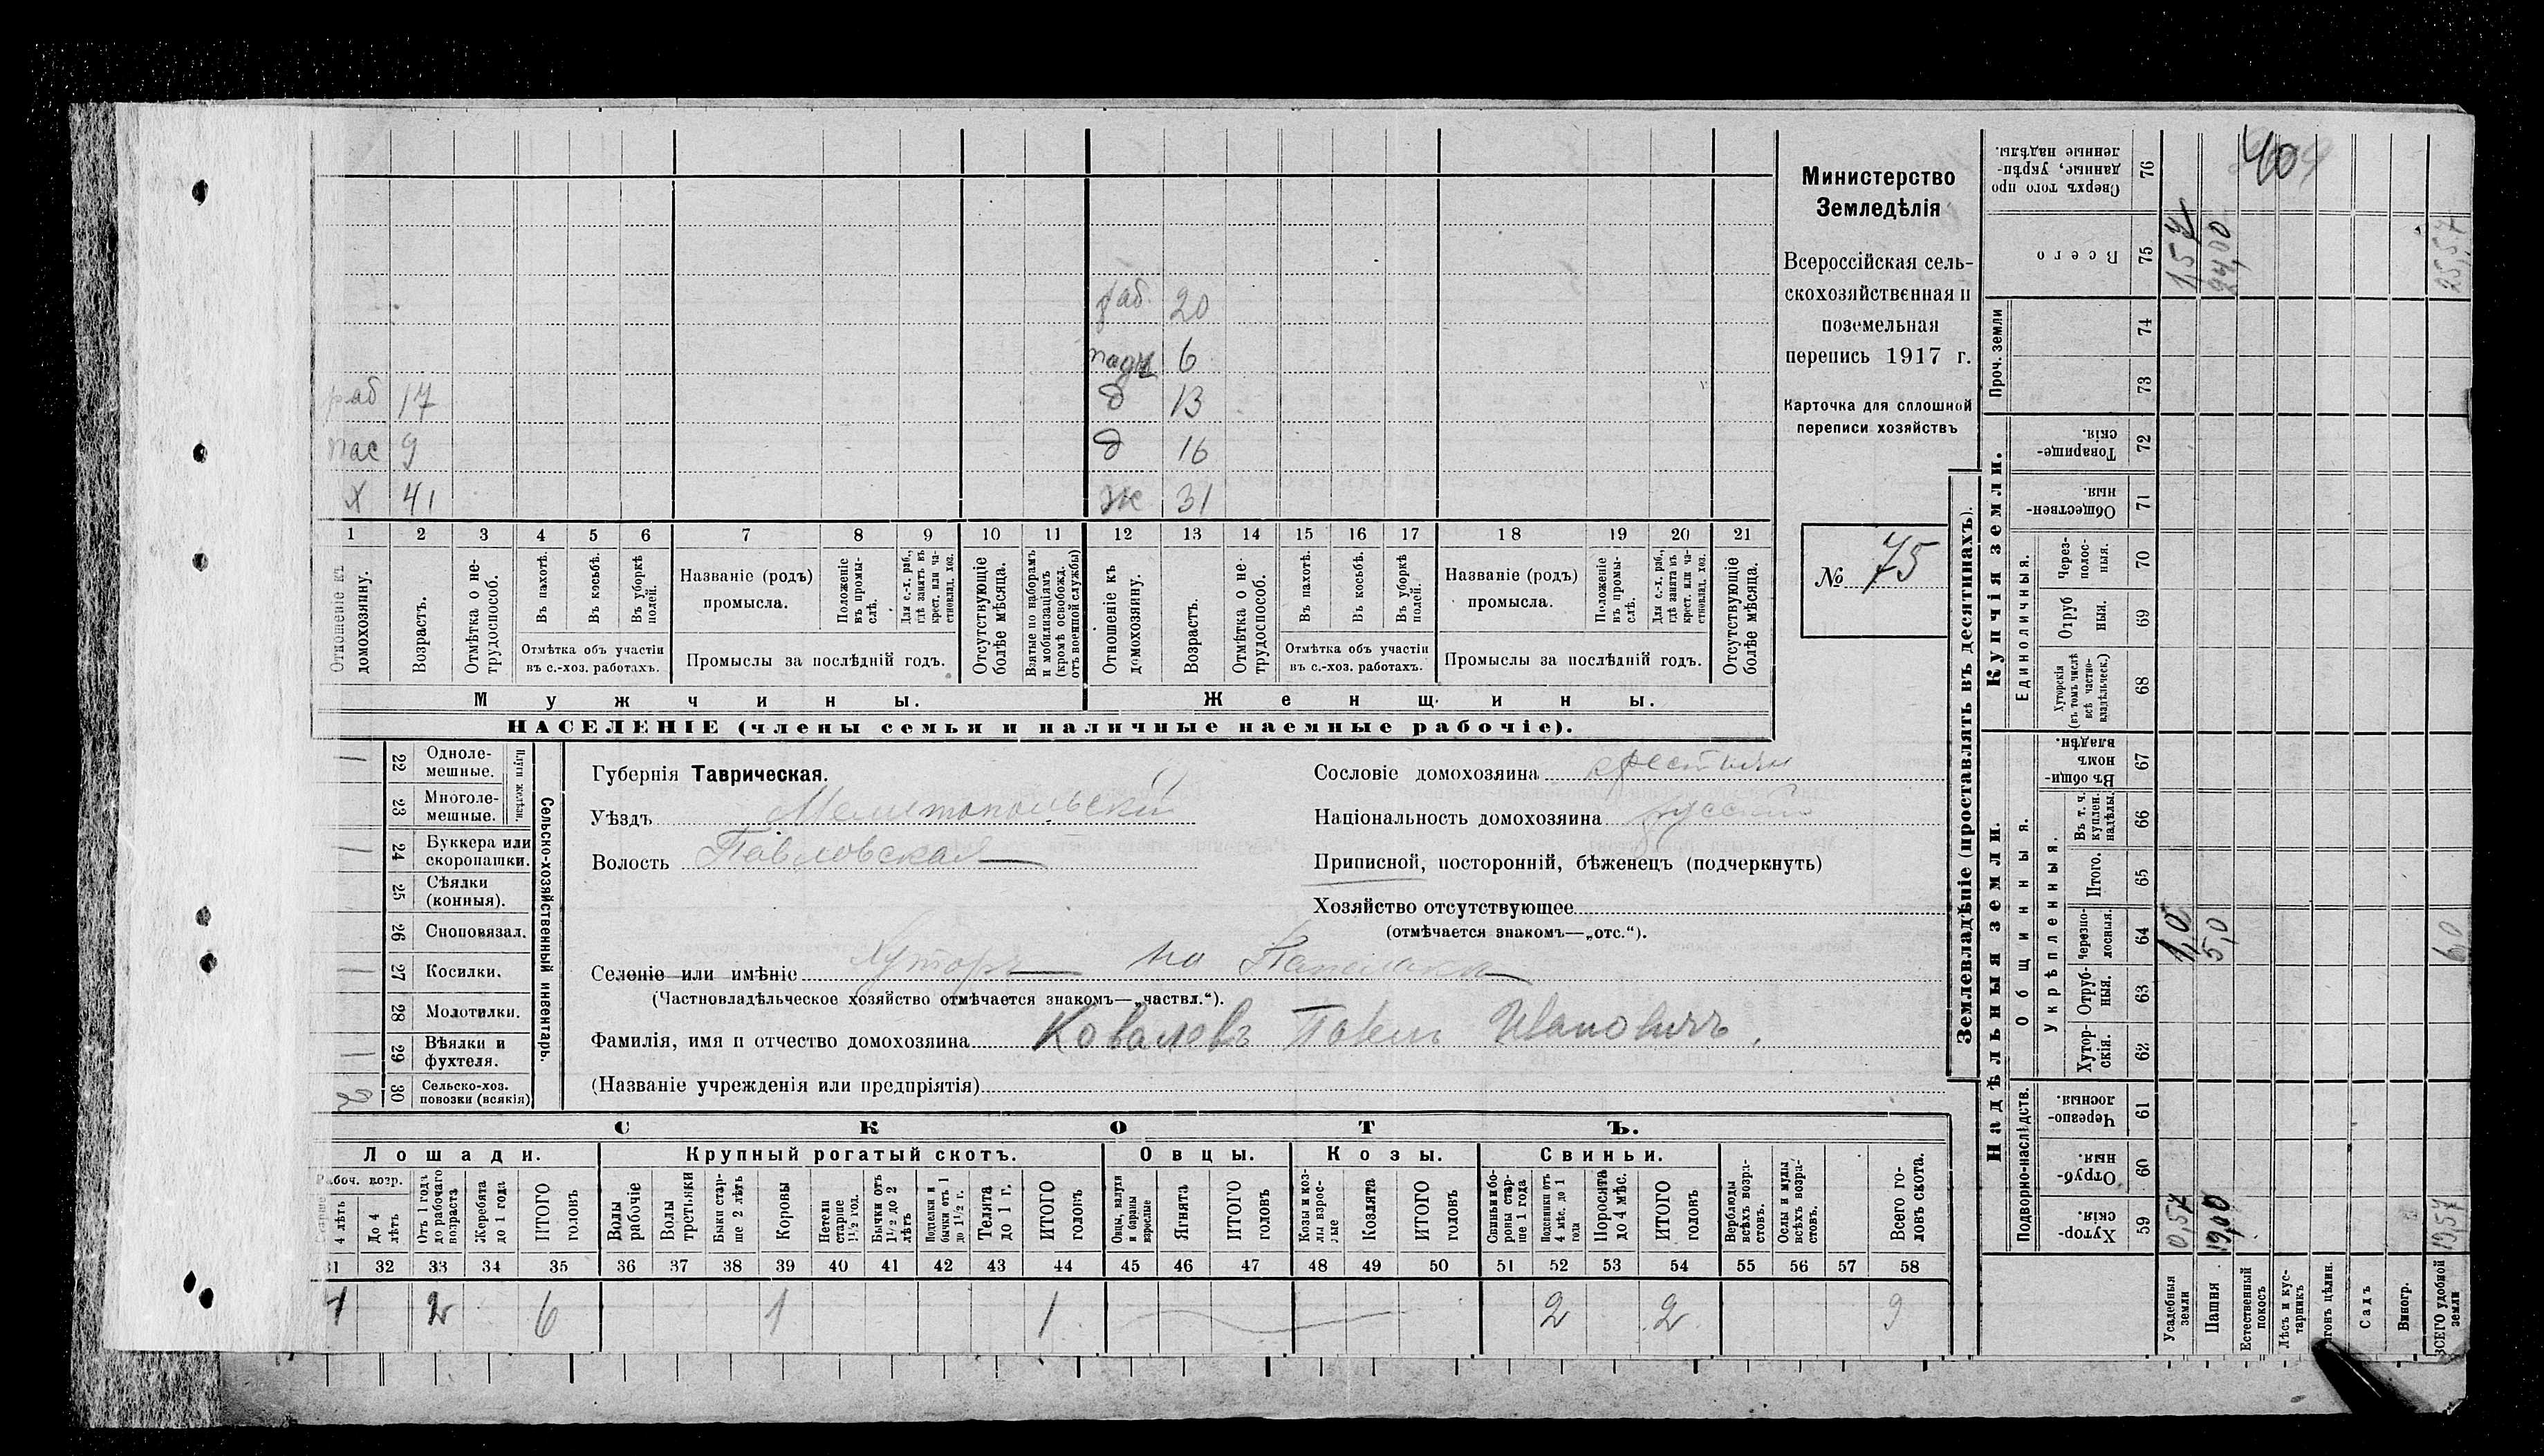 Министерство
Земледѣлія
Всероссійская сель-
скохозяйственная и
поземельная
перепись 1917 г.
Карточка для сплошной
переписи хозяйствъ
№ 75
раб. 20
6
раб 17 д 13
пас 9 д 16
х 41 ж 31
1 2 3 4 5 6 7 8 9 10 11 12 13 14 15 16 17 18 19 20 21
Отношеніе къ домохозяину.
Возрастъ.
Отмѣтка о не-трудоспособ.
Въ пахотѣ.
Въ косьбѣ.
Въ уборкѣ полей.
Отмѣтка объ участіи
въ с.-хоз. работахъ.
Названіе (родъ)
промысла.
Положеніе въ промы-слѣ.
Для с.-х. раб., гдѣ занятъ въ крест. или ча-стновлад. хоз.
Промыслы за послѣдній годъ.
Отсутствующіе болѣе мѣсяца.
Взятые по наборамъ и мобилизаціямъ (кромѣ освобожд. отъ военной службы)
Отношеніе къ домохозяину.
Возрастъ.
Отмѣтка о не-трудоспособ.
Въ пахотѣ.
Въ косьбѣ.
Въ уборкѣ полей.
Отмѣтка объ участіи
въ с.-хоз. работахъ.
Названіе (родъ)
промысла.
Положеніе въ промы-слѣ.
Для с.-х. раб., гдѣ занята въ крест. или ча-стновлад. хоз.
Промыслы за послѣдній годъ.
Отсутствующіе болѣе мѣсяца.
Мужчины. Женщины.
НАСЕЛЕНІЕ (члены семьи и наличные наемные рабочіе).
Сельско-хозяйственный инвентарь.
Плуги желѣзн.
22 Одноле-мешные.
23 Многоле-мешные.
24 Буккера или скоропашки.
25 Сѣялки (конныя).
26 Сноповязал.
27 Косилки.
28 Молотилки.
29 Вѣялки и фухтеля.
30 Сельско-хоз. повозки (всякія)
Губернія Таврическая.
Уѣздъ Мелитопольскій
Волость Павловская
Селеніе или имѣніе Хуторъ на
(Частновладѣльческое хозяйство отмѣчается знакомъ—„частвл.“).
Фамилія, имя и отчество домохозяина Ковалевъ Павелъ Ивановичъ.
(Названіе учрежденія или предпріятія)
Сословіе домохозяина крестьян
Національность домохозяина русскій
Приписной, посторонній, бѣженец (подчеркнуть)
Хозяйство отсутствующее
(отмѣчается знакомъ—„отс.“).
СКОТЪ.
Лошади. Крупный рогатый скотъ. Овцы. Козы. Свиньи.
Рабоч. возр.
Старше 4 лѣтъ
До 4 лѣтъ
Отъ 1 года до рабочаго возраста
Жеребята до 1 года
ИТОГО головъ
Волы рабочіе
Волы третьяки
Быки стар-ше 2 лѣтъ
Коровы
Нетели старше 1½ год.
Бычки отъ 1½ до 2 лѣтъ
Подтелки и бычки отъ 1 до 1½ г.
Телята до 1 г.
ИТОГО головъ
Овцы, валухи и бараны взрослые
Ягнята
ИТОГО головъ
Козы и коз-лы взрос-лые
Козлята
ИТОГО головъ
Свиньи и бо-ровы стар-ше 1 года
Подсвинки отъ 4 мѣс. до 1 года
Поросята до 4 мѣс.
ИТОГО головъ
Верблюды всѣхъ возра-стовъ.
Ослы и мулы всѣхъ возра-стовъ.
Всего го-ловъ скота.
31 32 33 34 35 36 37 38 39 40 41 42 43 44 45 46 47 48 49 50 51 52 53 54 55 56 57 58
2 6 1 1 2 2 9
Землевладѣніе (проставлять въ десятинахъ).
Надѣльныя земли.
Подворно-наслѣдств.
Хутор-скія. 59
Отруб-ныя. 60
Черезпо-лосныя. 61
Общинныя.
Укрѣпленныя.
Хутор-скія. 62
Отруб-ныя. 63
Черезпо-лосныя. 64
Итого. 65
Въ т. ч. куплен. надѣлы. 66
Въ общи-номъ владѣн. 67
Купчія земли.
Единоличныя.
Хуторскія (въ томъ числѣ всѣ частно-владѣльческ.) 68
Отруб ныя. 69
Через-полос-ныя. 70
Обществен-ныя. 71
Товарище-скія. 72
Проч. земли
73 74
Всего 75
Сверхъ того про-данные, укрѣп-ленные надѣлы. 76
Усадебныя земли 0,57 1,0 1,57
Пашня 19,00 5,0 24,00
Естественный покосъ
Лѣсъ и кус-тарникъ
Садъ
Виногр.
ВСЕГО удобной земли 19,57 6,0 25,57